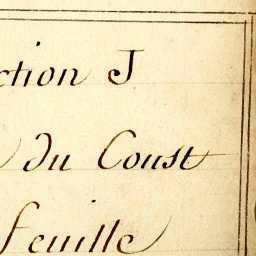 ction J
du Coust
feuille